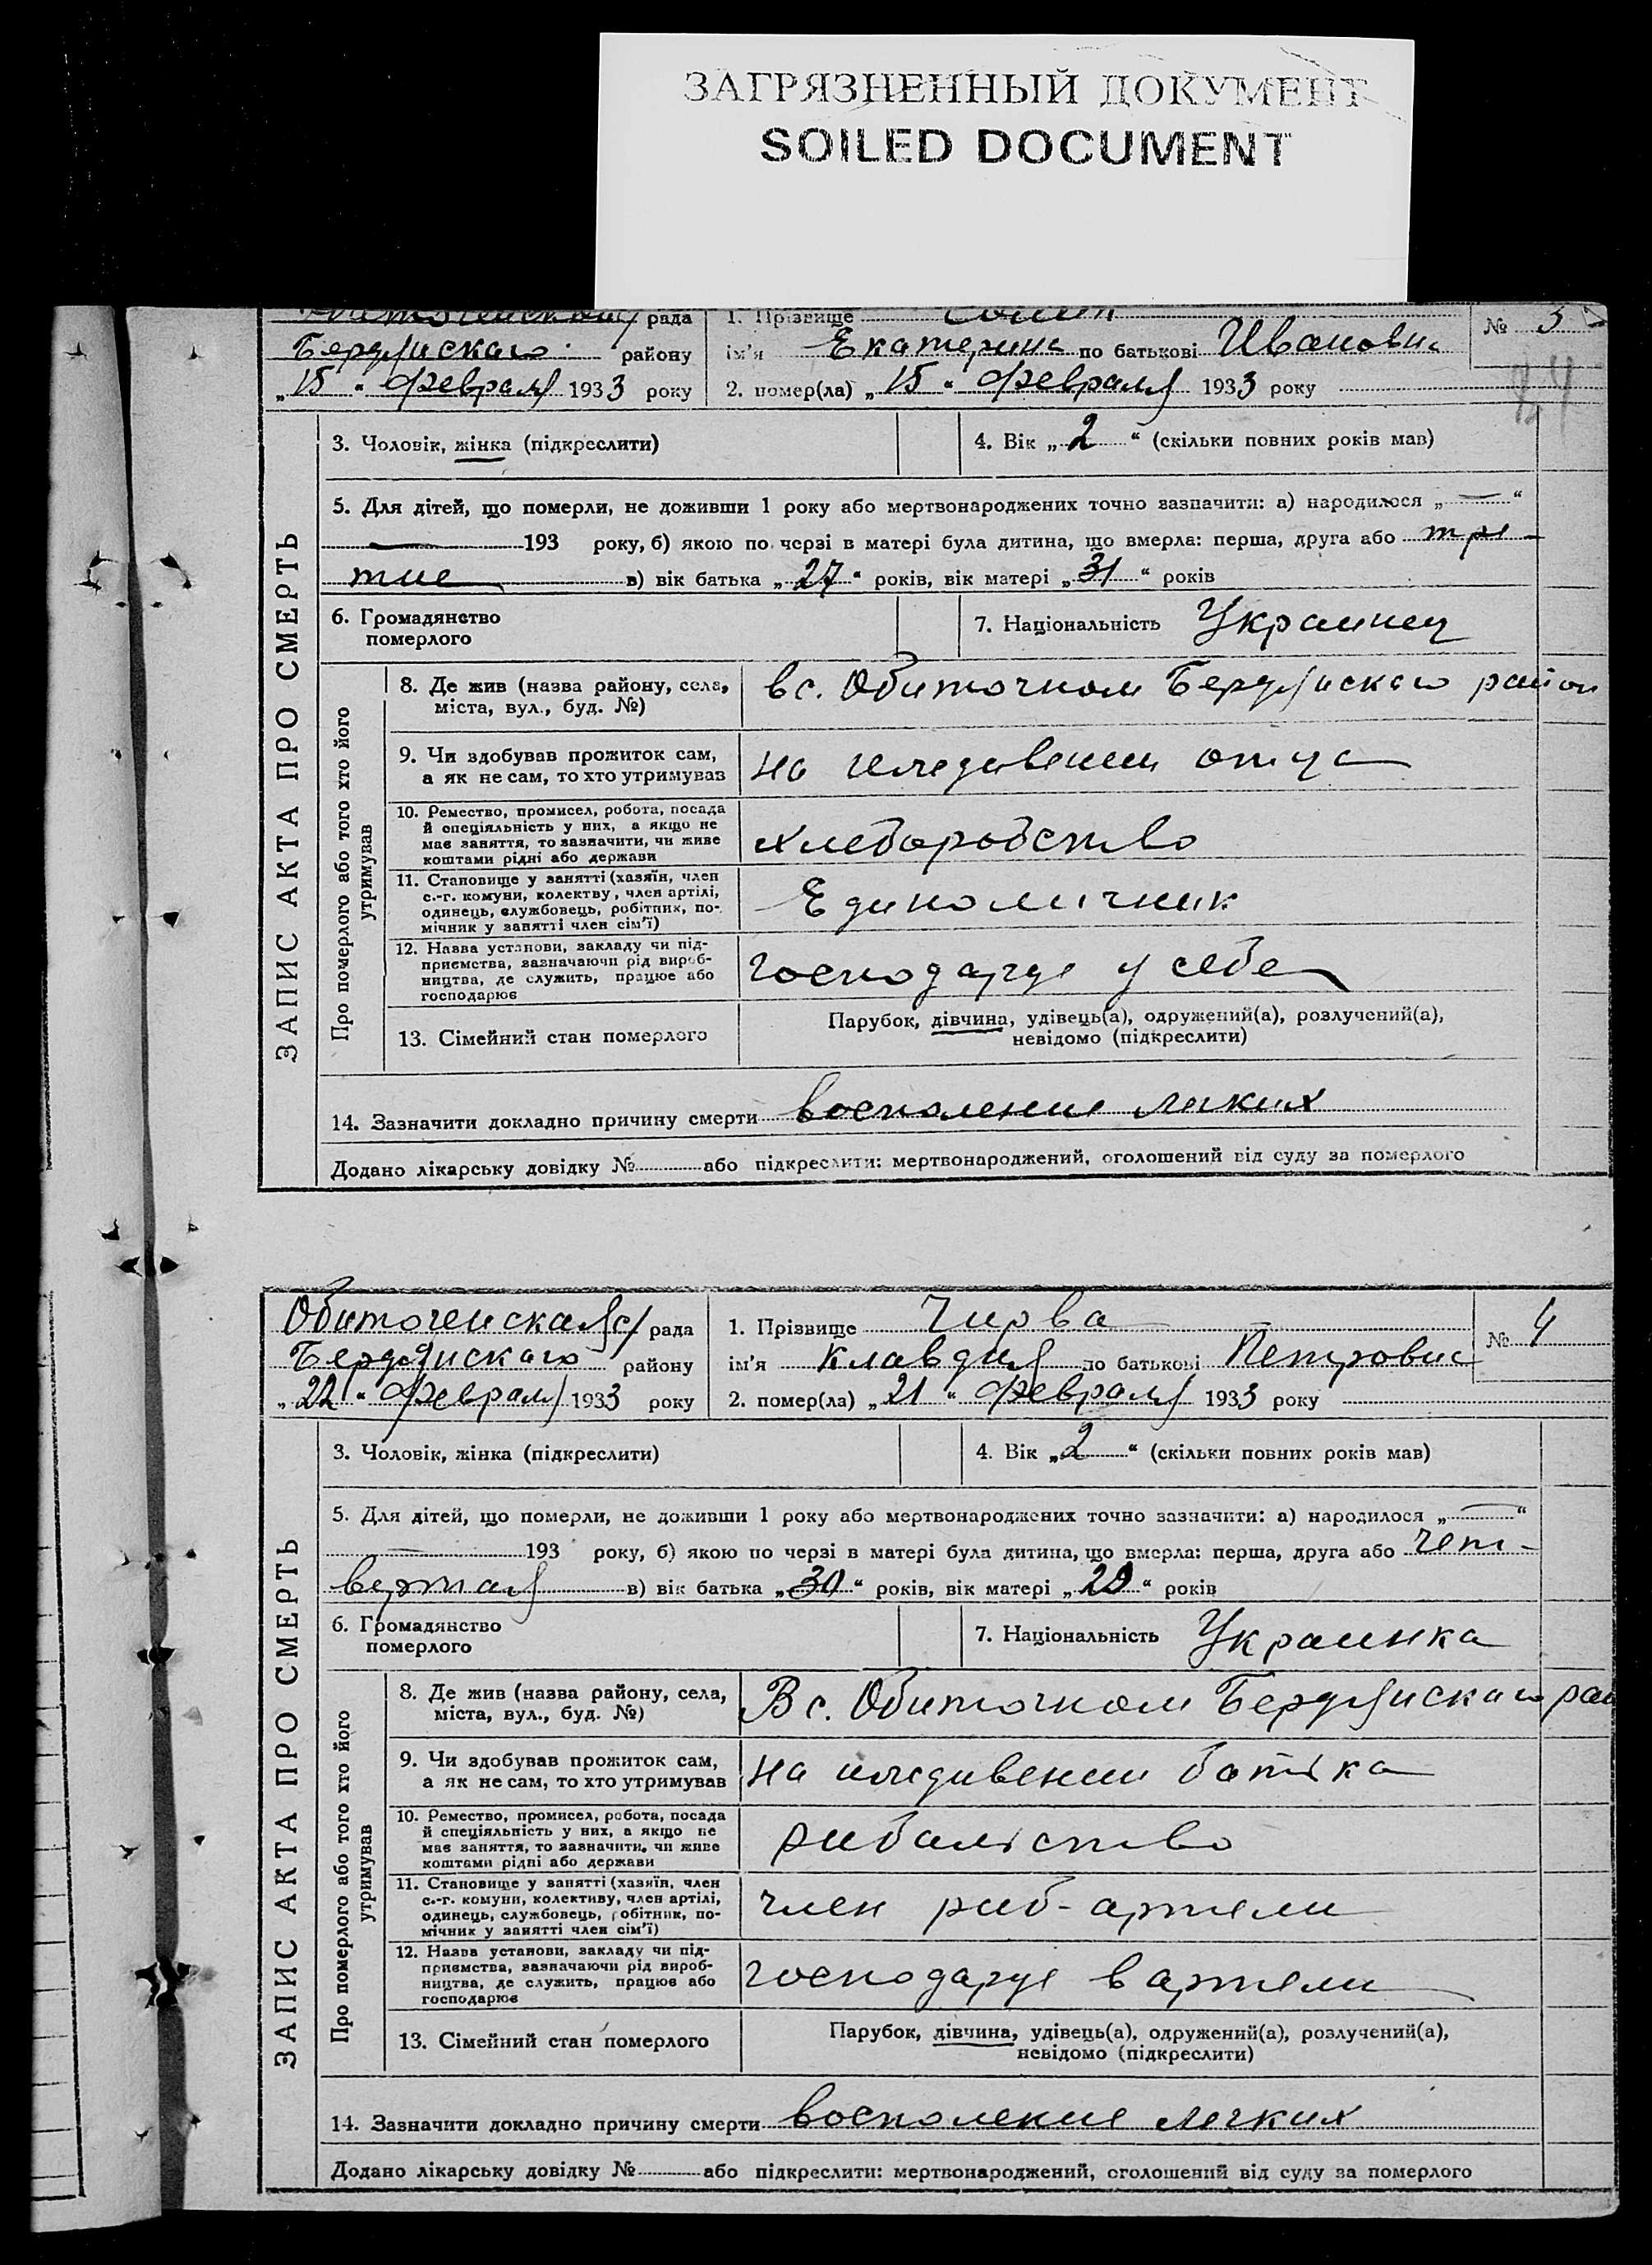 ЗАГРЯЗНЕННЫЙ ДОКУМЕНТ
SOILED DOCUMENT
рада
1. Прізвище
№ 3
Бердянскаго району
ім'я Екатерина по батькові Ивановна
„15“ февраля 1933 року
2. помер(ла) „15“ февраля 1933 року
ЗАПИС АКТА ПРО СМЕРТЬ
3. Чоловік, жінка (підкреслити)
4. Вік „2“ (скільки повних років мав)
5. Для дітей, що померли, не доживши 1 року або мертвонароджених точно зазначити: а) народилося „—“
— 193 року, б) якою по черзі в матері була дитина, що вмерла: перша, друга або тре-
тие в) вік батька „27“ років, вік матері „31“ років
6. Громадянство
померлого
7. Національність Украинец
Про померлого або того хто його
утримував
8. Де жив (назва району, села,
міста, вул., буд. №)
в с. Обиточном Бердянскаго район
9. Чи здобував прожиток сам,
а як не сам, то хто утримував
на иждивении отца
10. Ремество, промисел, робота, посада
й спеціяльність у них, а якщо не
має заняття, то зазначити, чи живе
коштами рідні або держави
хлеборобство
11. Становище у занятті (хазяїн, член
с.-г. комуни, колектву, член артілі,
одинець, службовець, робітник, по-
мічник у занятті член сім'ї)
Единоличник
12. Назва установи, закладу чи під-
приємства, зазначаючи рід вироб-
ництва, де служить, працює або
господарює
господарує у себе
13. Сімейний стан померлого
Парубок, дівчина, удівець(а), одружений(а), розлучений(а),
невідомо (підкреслити)
14. Зазначити докладно причину смерти восполение легких
Додано лікарську довідку № або підкреслити: мертвонароджений, оголошений від суду за померлого
Обиточенская с/ рада
1. Прізвище Чирва
№ 4
Бердянскаго району
ім'я Клавдия по батькові Петровна
„22“ февраля 1933 року
2. помер(ла) „21“ февраля 1933 року
ЗАПИС АКТА ПРО СМЕРТЬ
3. Чоловік, жінка (підкреслити)
4. Вік „2“ (скільки повних років мав)
5. Для дітей, що померли, не доживши 1 року або мертвонароджених точно зазначити: а) народилося „—“
— 193 року, б) якою по черзі в матері була дитина, що вмерла: перша, друга або чет-
вертая в) вік батька „30“ років, вік матері „29“ років
6. Громадянство
померлого
7. Національність Украинка
Про померлого або того хто його
утримував
8. Де жив (назва району, села,
міста, вул., буд. №)
В с. Обиточном Бердянскаго рай
9. Чи здобував прожиток сам,
а як не сам, то хто утримував
на иждивении батька
10. Ремество, промисел, робота, посада
й спеціяльність у них, а якщо не
має заняття, то зазначити, чи живе
коштами рідні або держави
рибальство
11. Становище у занятті (хазяїн, член
с.-г. комуни, колективу, член артілі,
одинець, службовець, робітник, по-
мічник у занятті член сім'ї)
член риб-артели
12. Назва установи, закладу чи під-
приємства, зазначаючи рід вироб-
ництва, де служить, працює або
господарює
господарує в артели
13. Сімейний стан померлого
Парубок, дівчина, удівець(а), одружений(а), розлучений(а),
невідомо (підкреслити)
14. Зазначити докладно причину смерти восполение легких
Додано лікарську довідку № або підкреслити: мертвонароджений, оголошений від суду за померлого